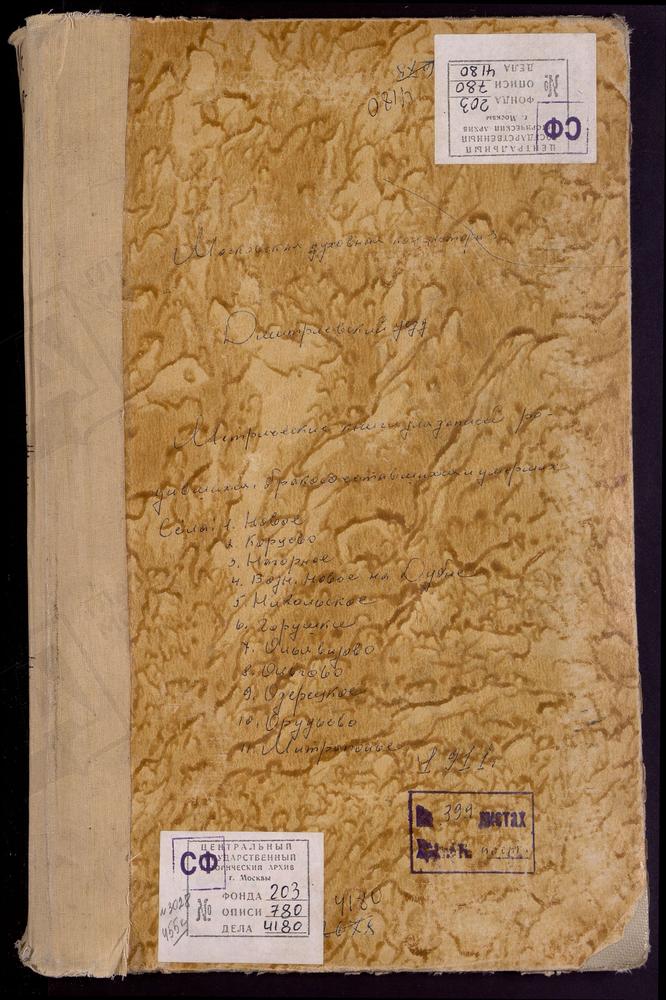 ЦЕНТРАЛЬНЫЙ
ГОСУДАРСТВЕННЫЙ
ИСТОРИЧЕСКИЙ АРХИВ
г. Москвы
СФ
№
ФОНДА 203
ОПИСИ 780
ДЕЛА 4180
4180
Московская духовная консистория
Дмитровский уезд
Метрические книги для записей ро-
дившихся, бракосочетавшихся и умерших
Села: 1. Новое
2. Корцево
3. Нагорное
4. Возн. Новое на Дубне
5. Никольское
6. Горушки
7. Ольявидово
8. Ольгово
9. Озерецкое
10. Орудьево
11. Митрополье
1911г.
На 399 листах
ЦЕНТРАЛЬНЫЙ
ГОСУДАРСТВЕННЫЙ
ИСТОРИЧЕСКИЙ АРХИВ
г. Москвы
СФ
№
ФОНДА 203
ОПИСИ 780
ДЕЛА 4180
4180
№3028